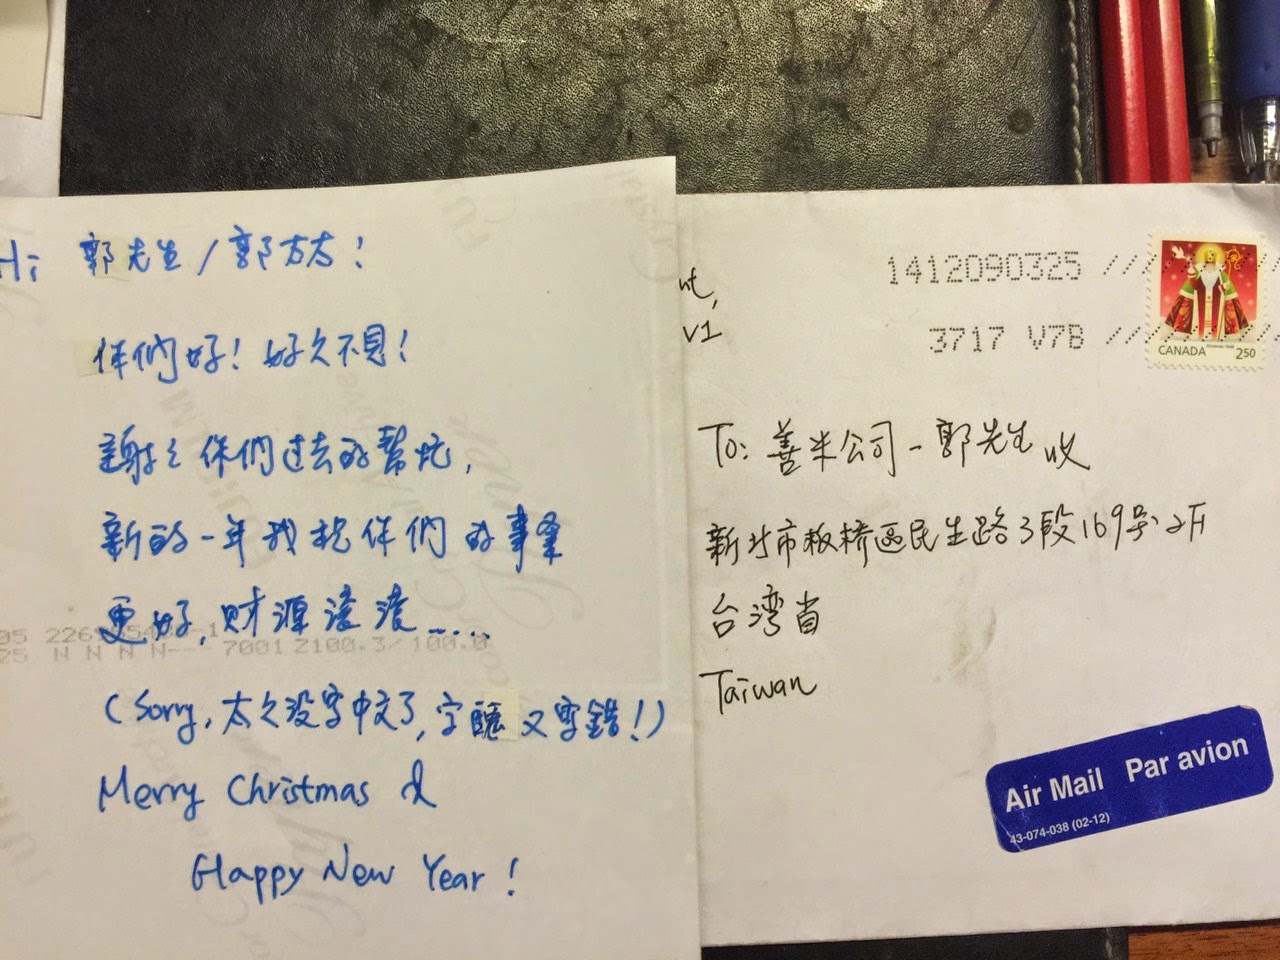 Hi 郭先生/郭太太!
你們好! 好久不見!
謝謝你們过去的幫忙,
新的一年我祝你們的事業
更好, 财源滾滾.....
(Sorry, 太久没写中文了, 字醜又写錯!)
Merry Christmas &
Happy New Year!
nt,
V1
1412090325
3717 V7B
CANADA 2.50
To: 善米公司-郭先生 收
新北市板橋區民生路3段169号2F
台湾省
Taiwan
Air Mail Par avion
43-074-038 (02-12)
7001 2100.3/ 100.0